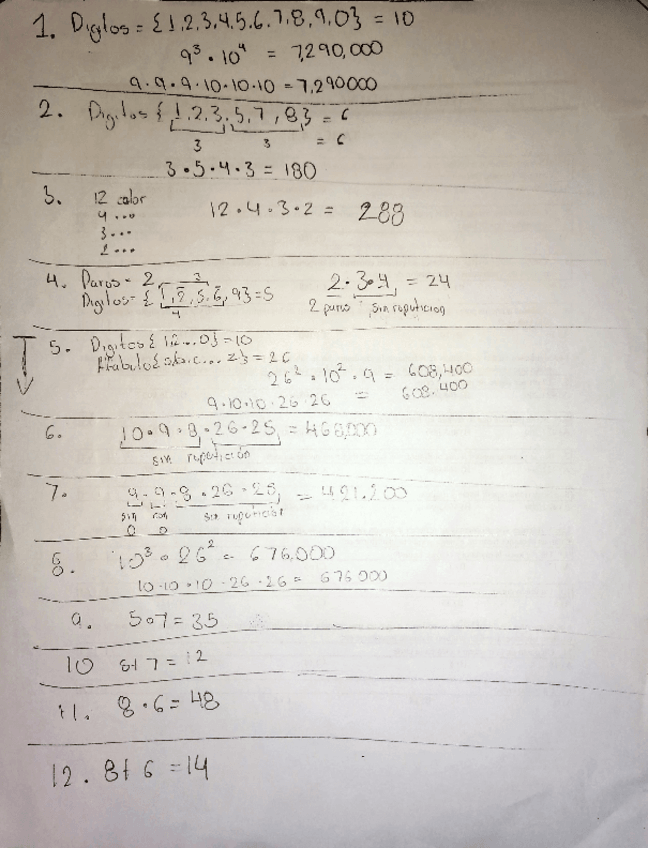 1. Digitos = {1,2,3,4,5,6,7,8,9,0} = 10
9³ · 10⁴ = 7,290,000
9·9·9·10·10·10 = 7,290000
2. Digitos {1,2,3,5,7,8} = 6
3 3 = 6
3·5·4·3 = 180
3. 12 color 12·4·3·2 = 288
4 ...
3 ...
2 ...
4. Pares = 2 3 2·3·4 = 24
Digitos = {1,2,5,6,9} = 5 2 pares sin repeticion
4
5. Digitos {12...0} = 10
= 26
26² · 10² · 9 = 608,400
9·10·10·26·26 = 608.400
6. 10·9·8·26·25 = 468,000
sin repetición
7. 9·9·8·26·25 = 421.200
sin con sin repetición
0 0
8. 10³ · 26² = 676.000
10·10·10·26·26 = 676000
9. 5·7 = 35
10 5+7 = 12
11. 8·6 = 48
12. 8+6 = 14